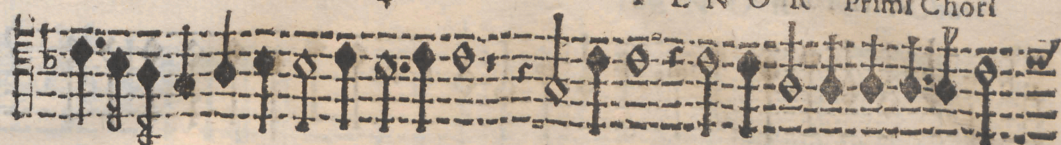 T E N O R Primi Chori